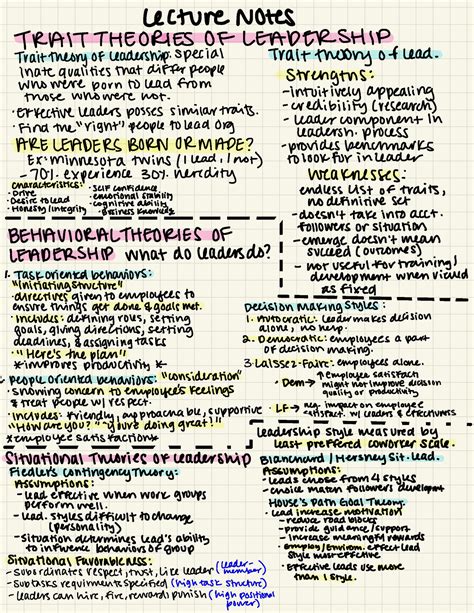 Lecture Notes
TRAIT THEORIES OF LEADERSHIP
Trait theory of leadership: special
inate qualities that differ people
who were born to lead from
those who were not.
• Effective leaders posses similar traits.
• Find the "right" people to lead org
ARE LEADERS BORN OR MADE?
Ex: Minnesota twins (1 lead, 1 not)
- 70% experience 30% herdity
Characteristics:
• Drive
• Desire to lead
• Honesty/integrity
• self confidence
• emotional stability
• cognitive ability
• Business knowledg
Trait theory of lead.
Strengths:
- intuitively appealing
- credibility (research)
- leader component in
leadersh. process
- provides benchmarks
to look for in leader
Weaknesses:
- endless list of traits,
no definitive set
- doesn't take into acct.
followers or situation
- emerge doesn't mean
succeed (outcomes)
- not useful for training/
development when viewed
as fixed
BEHAVIORAL THEORIES OF
LEADERSHIP what do leaders do?
1. Task oriented behaviors:
"Initiating structure"
• directives given to employees to
ensure things get done & goals met.
• Includes: defining roles, setting
goals, giving directions, setting
deadlines, & assigning tasks
• "Here's the plan"
*improves productivity*
2. People oriented behaviors: "consideration"
• showing concern to employee's feelings
& treat people w/ respect.
• Includes: friendly, approachable, supportive
• "How are you?" "you're doing great!"
*employee satisfaction*
Decision Making Styles:
1. Autocratic: leader makes decision
alone, no help.
2. Democratic: employees a part
of decision making.
3. Laissez-Faire: employees alone.
Dem → ↑ employee satisfact
might not improve decision
quality or productivity
LF → neg. impact on employee
satisfact. w/ leaders & effectiveness
leadership style measured by
least preffered coworker scale.
Situational Theories of Leadership
Fiedler's Contingency Theory:
Assumptions:
- lead effective when work groups
perform well.
- lead. styles difficult to change
(personality)
- Situation determines lead's ability
to influence behaviors of group
Situational Favorableness:
• subordinates respect, trust, like leader (leader-member)
• Sub tasks requirments specified (high task structure)
• leaders can hire, fire, reward, punish (high positional power)
Blanchard / Hershey Sit. lead.
Assumptions:
- leads chose from 4 styles
- choice match followers developmt
House's Path Goal Theory
- lead increase motivation
- reduce road blocks
- provide guidance/support
- increase meaningful rewards
- employ/environ. effect lead
style most effective
- Effective leads use more
than 1 style.